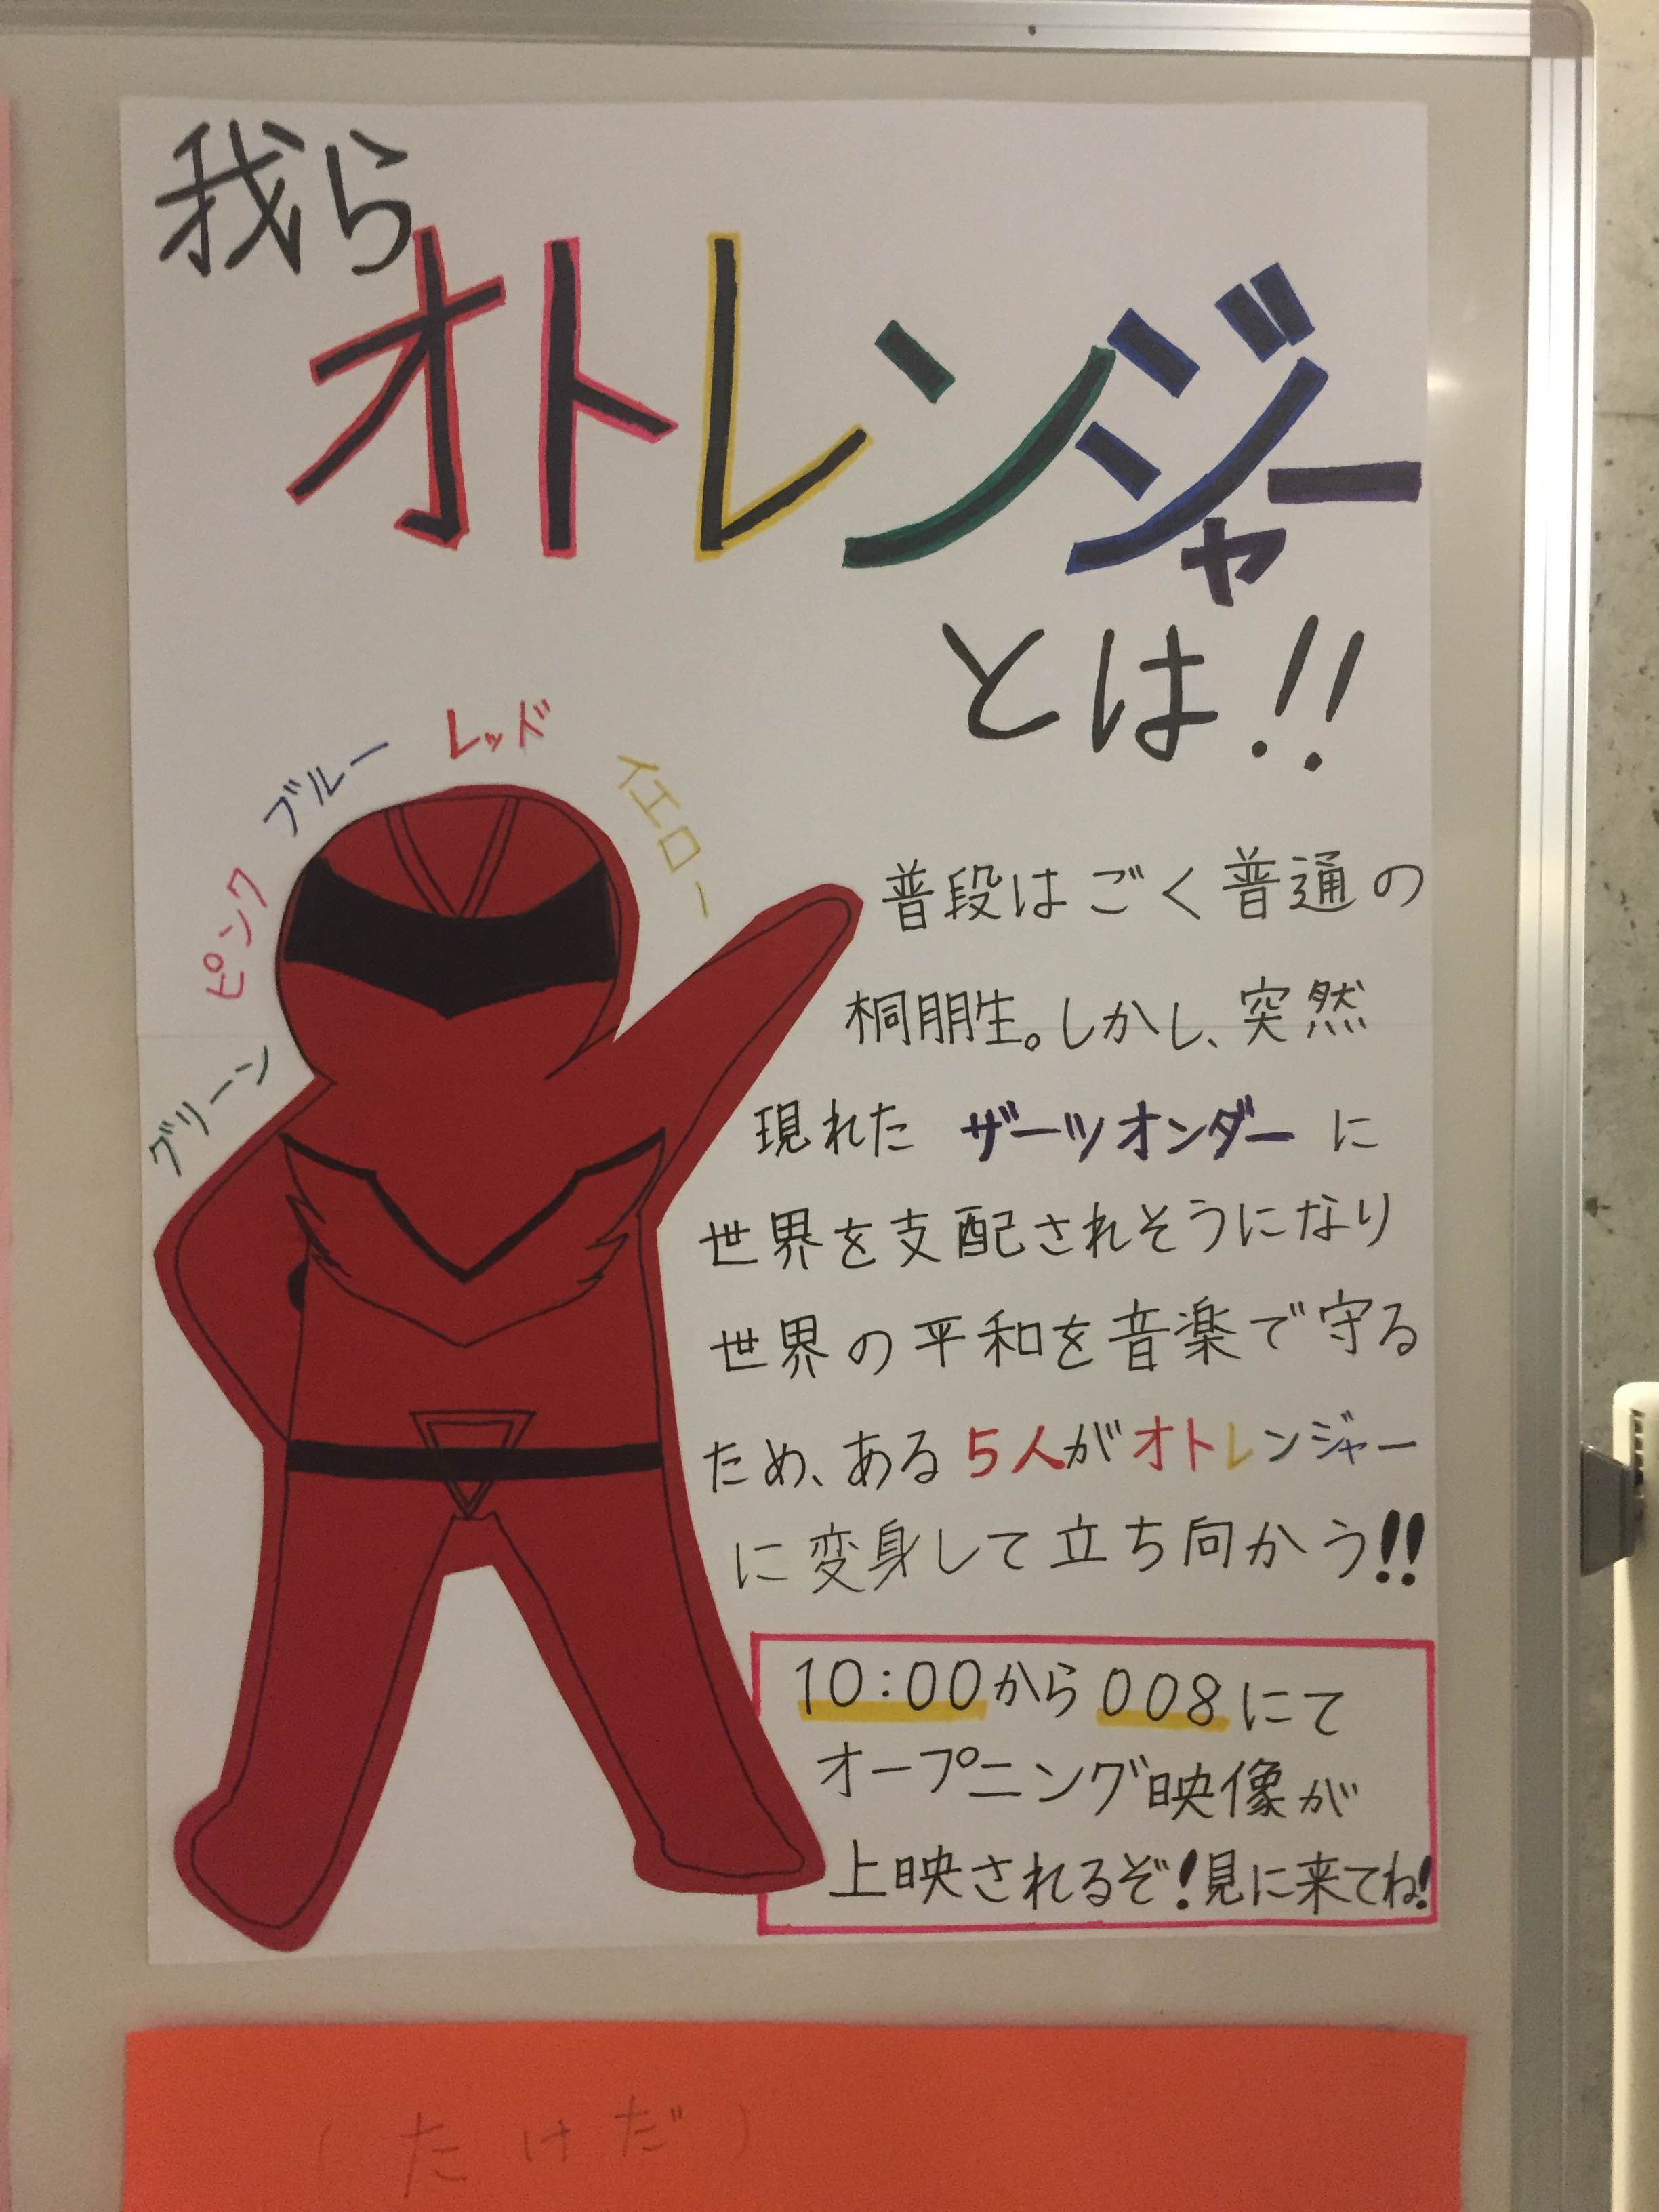 我ら
オトレンジャー
とは!!
グリーン
ピンク
ブルー
レッド
イエロー
普段はごく普通の
桐朋生。しかし、突然
現れた ザーツオンダー に
世界を支配されそうになり
世界の平和を音楽で守る
ため、ある5人がオトレンジャー
に変身して立ち向かう!!
10:00から008にて
オープニング映像が
上映されるぞ!見に来てね!
(たけだ)